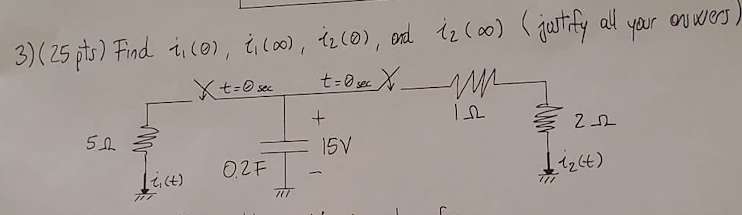 3) (25 pts) Find i₁(0), i₁(∞), i₂(0), and i₂(∞) (justify all your answers)
t=0 sec t=0 sec
1Ω
5Ω + 2Ω
15V
0.2F -
i₁(t) i₂(t)